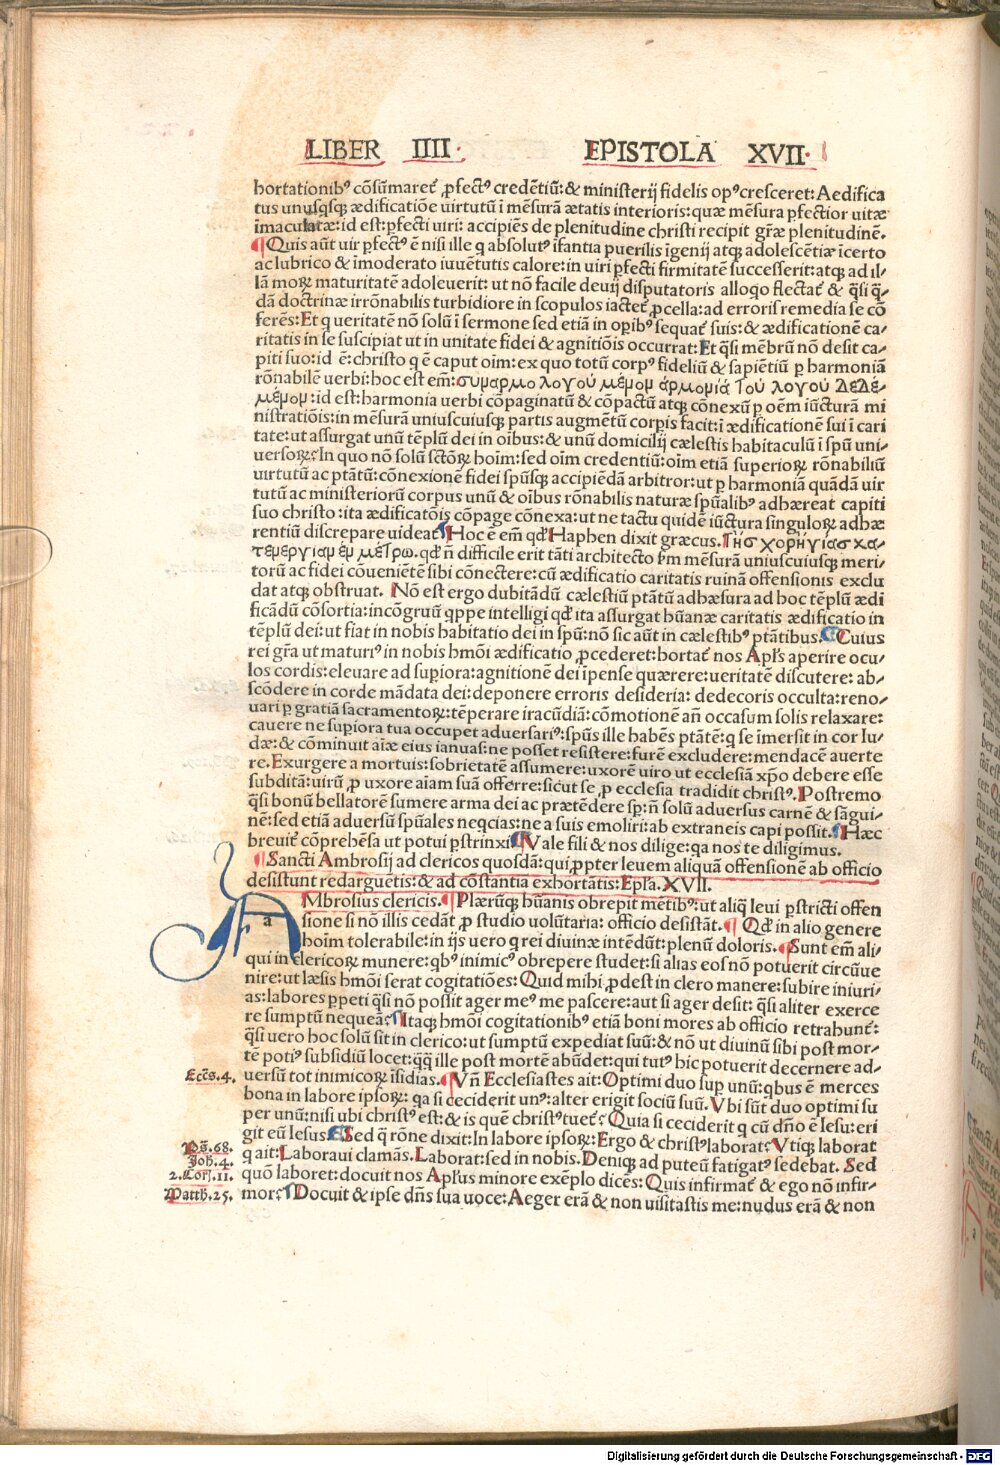 LIBER IIII EPISTOLA XVII.
hortationib⁹ cõsũmaret᷑ ꝓfect⁹ credẽtiũ: & ministerij fidelis op⁹ cresceret: Aedifica
tus unusqsqꝫ ædificatiõe uirtutũ ĩ mẽsurã ætatis interioris: quæ mẽsura ꝑfectior uitæ
ĩmaculatæ: id est: ꝑfecti uiri: accipiẽs de plenitudine christi recipit gr̃æ plenitudinẽ.
Quis aũt uir ꝑfect⁹ ẽ nisi ille q absolut⁹ ĩfantia puerilis ĩgenij atqꝫ adolescẽtiæ ĩcerto
ac lubrico & ĩmoderato iuuẽtutis calore: in uiri ꝑfecti firmitatẽ successerit: atqꝫ ad il/
lã moꝝ maturitatẽ adoleuerit: ut nõ facile deuij disputatoris alloqo flectat᷑ & q̃si q̃/
dã doctrinæ irrõnabilis turbidiore in scopulos iactet᷑ ꝓcella: ad erroris remedia se cõ
ferẽs: Et q ueritatẽ nõ solũ ĩ sermone sed etiã in oꝑib⁹ sequat᷑ suis: & ædificationẽ ca/
ritatis in se suscipiat ut in unitate fidei & agnitiõis occurrat: Et q̃si mẽbrũ nõ desit ca/
piti suo: id ẽ: christo q ẽ caput oĩm: ex quo totũ corp⁹ fideliũ & sapiẽtiũ ꝑ harmoniã
rõnabilẽ uerbi: hoc est em̃: συμαρμο λογου μεμομ αρμομια του λογου δεδε/
μεμομ: id est: harmonia uerbi cõpaginatũ & cõpactũ atqꝫ cõnexũ ꝑ oẽm iũcturã mi
nistratiõis: in mẽsurã uniuscuiusqꝫ partis augmẽtũ corꝑis facit: ĩ ædificationẽ sui ĩ cari
tate: ut assurgat unũ tẽplũ dei in oĩbus: & unũ domicilij cælestis habitaculũ ĩ spũ uni/
uersoꝝ: In quo nõ solũ sctõꝝ hoĩm: sed oĩm credentiũ: oĩm etiã superioꝝ rõnabiliũ
uirtutũ ac ptãtũ: cõnexionẽ fidei spũsqꝫ accipiẽdã arbitror: ut ꝑ harmoniã quãdã uir
tutũ ac ministerioruũ corpus unũ & oĩbus rõnabilis naturæ spũalib⁹ adhæreat capiti
suo christo: ita ædificatõis cõpage cõnexa: ut ne tactu quidẽ iũctura singuloꝝ adhæ
rentiũ discrepare uideat᷑ Hoc ẽ em̃ qd̃ Haphen dixit græcus. Τησ χορηγιασ κα/
τεμεργιαμ εμ μετρω. qd̃ ñ difficile erit tãti architecto ẜm mẽsurã uniuscuiusqꝫ meri/
torũ ac fidei cõueniẽtẽ sibi cõnectere: cũ ædificatio caritatis ruinã offensionis exclu
dat atqꝫ obstruat. Nõ est ergo dubitãdũ cælestiũ ptãtũ adhæsura ad hoc tẽplũ ædi
ficãdũ cõsortia: incõgruũ qppe intelligi qd̃ ita assurgat hũanæ caritatis ædificatio in
tẽplũ dei: ut fiat in nobis habitatio dei in spũ: nõ sic aũt in cælestib⁹ ptãtibus. Cuius
rei gr̃a ut matur⁹ in nobis hmõi ædificatio ꝓcederet: hortat᷑ nos Apl̃s aperire ocu/
los cordis: eleuare ad suꝑiora: agnitionẽ dei ĩpense quærere: ueritatẽ discutere: ab/
scõdere in corde mãdata dei: deponere erroris desideria: dedecoris occulta: reno/
uari ꝑ gratiã sacramentoꝝ: tẽperare iracũdiã: cõmotionẽ añ occasum solis relaxare:
cauere ne suꝑiora tua occupet aduersari⁹: spũs ille habẽs ptãtẽ: q se ĩmersit in cor Iu/
dæ: & cõminuit aĩæ eius ianuas: ne posset resistere: furẽ excludere: mendacẽ auerte
re. Exurgere a mortuis: sobrietatẽ assumere: uxorẽ uiro ut ecclesiã xp̃o debere esse
subditã: uirũ ꝓ uxore aĩam suã offerre: sicut se ꝓ ecclesia tradidit christ⁹. Postremo
q̃si bonũ bellatorẽ sumere arma dei ac prætẽdere sꝑ: ñ solũ aduersus carnẽ & sãgui/
nẽ: sed etiã aduersũ spũales neqcias: ne a suis emoliri: ab extraneis capi possit. Hæc
breuit᷑ cõprehẽsa ut potui ꝑstrinxi Vale fili & nos dilige: qa nos te diligimus.
Sancti Ambrosij ad clericos quosdã: qui ꝓpter leuem aliquã offensionẽ ab officio
desistunt redarguẽtis: & ad cõstantia exhortãtis: Epl̃a. XVII.
a
AMbrosius clericis. Plærũqꝫ hũanis obrepit mẽtib⁹: ut aliq̃ leui ꝑstricti offen
sione si nõ illis cedãt ꝓ studio uolũtaria: officio desistãt. Qd̃ in alio genere
hoĩm tolerabile: in ijs uero q rei diuinæ intẽdũt: plenũ doloris. Sunt em̃ ali/
qui in clericoꝝ munere: qb⁹ inimic⁹ obrepere studet: si alias eos nõ potuerit circũue
nire: ut læsis hmõi serat cogitatiões: Quid mihi ꝓdest in clero manere: subire iniuri/
as: labores ꝑpeti q̃si nõ possit ager me⁹ me pascere: aut si ager desit: q̃si aliter exerce
re sumptũ nequeã: Itaqꝫ hmõi cogitationib⁹ etiã boni mores ab officio retrahunt᷑:
q̃si uero hoc solũ sit in clerico: ut sumptũ expediat suũ: & nõ ut diuinũ sibi post mor/
tẽ poti⁹ subsidiũ locet: q̃q̃ ille post mortẽ abũdet: qui tut⁹ hic potuerit decernere ad/
Eccs̃. 4.
uersũ tot inimicoꝝ ĩsidias. Vñ Ecclesiastes ait: Optimi duo suꝑ unũ: qbus ẽ merces
bona in labore ipsoꝝ: qa si ceciderit un⁹: alter erigit sociũ suũ. Vbi sũt duo optimi su
per unũ: nisi ubi christ⁹ est: & is quẽ christ⁹ tuet᷑: Quia si ceciderit q cũ dño ẽ Iesu: eri
git eũ Iesus Sed q̃ rõne dixit: In labore ipsoꝝ: Ergo & christ⁹ laborat: Vtiqꝫ laborat
Ps̃. 68.
Joh̃. 4.
q ait: Laboraui clamãs. Laborat: sed in nobis. Deniqꝫ ad puteũ fatigat⁹ sedebat. Sed
2. Cor̃. 11.
quõ laboret: docuit nos Apl̃us minore exẽplo dicẽs: Quis infirmat᷑ & ego nõ infir/
Matth. 25.
mor: Docuit & ipse dñs sua uoce: Aeger erã & non uisitastis me: nudus erã & non
Digitalisierung gefördert durch die Deutsche Forschungsgemeinschaft - DFG